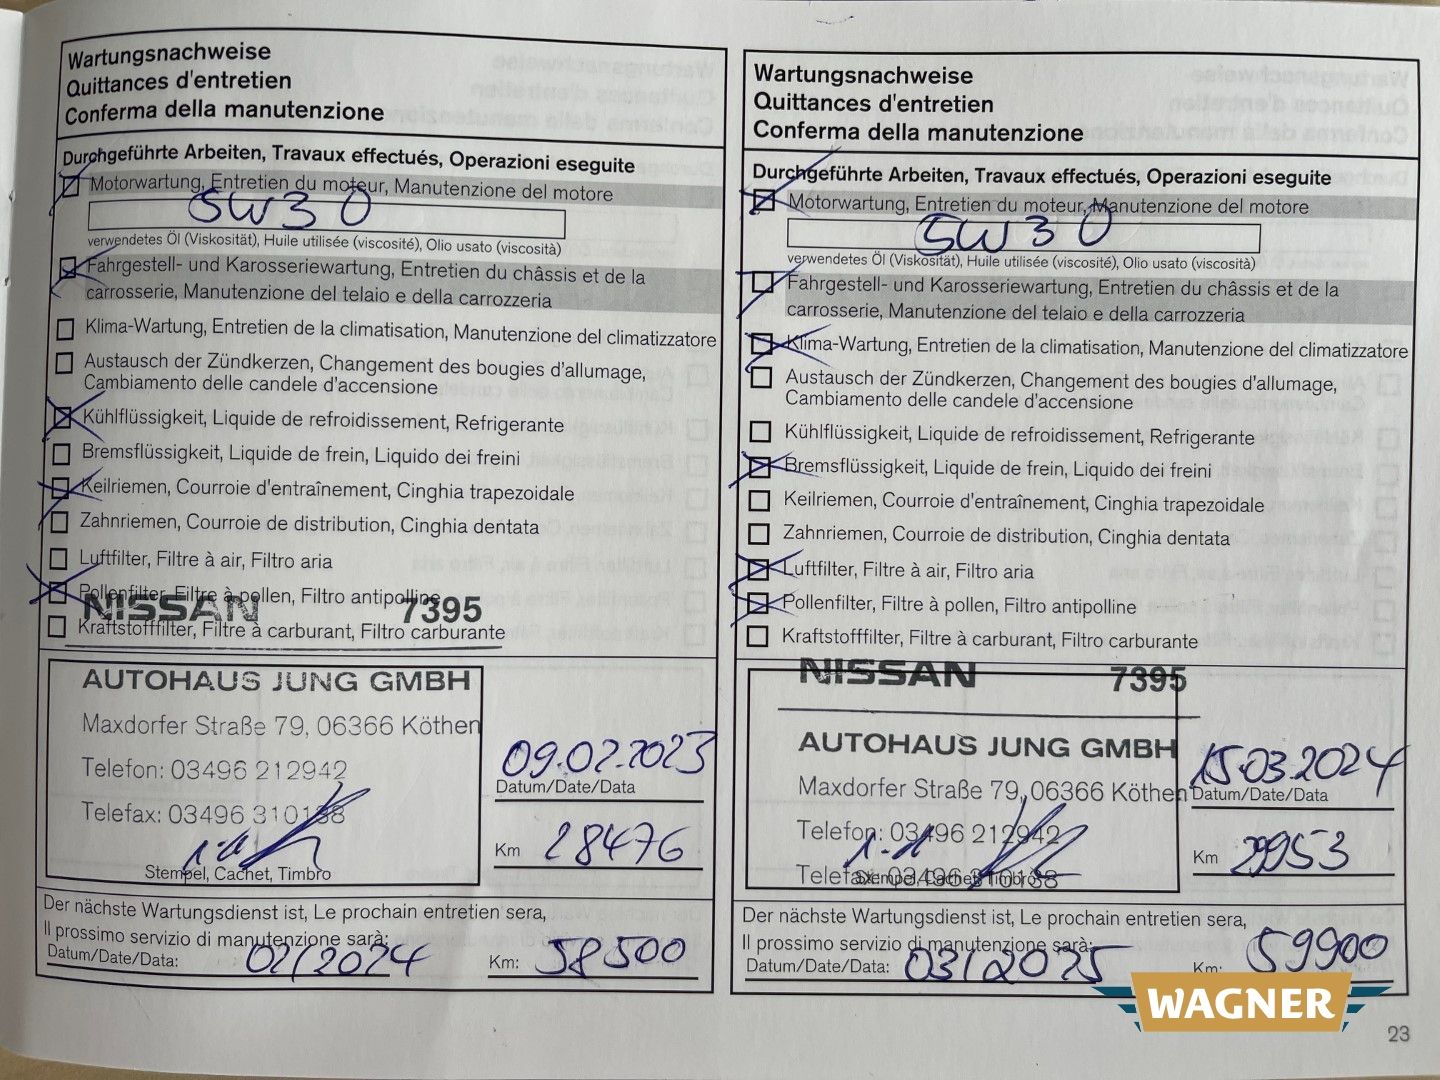 Wartungsnachweise
Quittances d'entretien
Conferma della manutenzione
Durchgeführte Arbeiten, Travaux effectués, Operazioni eseguite
Motorwartung, Entretien du moteur, Manutenzione del motore
5W30
verwendetes Öl (Viskosität), Huile utilisée (viscosité), Olio usato (viscosità)
Fahrgestell- und Karosseriewartung, Entretien du châssis et de la
carrosserie, Manutenzione del telaio e della carrozzeria
Klima-Wartung, Entretien de la climatisation, Manutenzione del climatizzatore
Austausch der Zündkerzen, Changement des bougies d'allumage,
Cambiamento delle candele d'accensione
Kühlflüssigkeit, Liquide de refroidissement, Refrigerante
Bremsflüssigkeit, Liquide de frein, Liquido dei freini
Keilriemen, Courroie d'entraînement, Cinghia trapezoidale
Zahnriemen, Courroie de distribution, Cinghia dentata
Luftfilter, Filtre à air, Filtro aria
Pollenfilter, Filtre à pollen, Filtro antipolline
NISSAN 7395
Kraftstofffilter, Filtre à carburant, Filtro carburante
AUTOHAUS JUNG GMBH
Maxdorfer Straße 79, 06366 Köthen
Telefon: 03496 212942
Telefax: 03496 310138
Stempel, Cachet, Timbro
09.02.2023
Datum/Date/Data
Km 28476
Der nächste Wartungsdienst ist, Le prochain entretien sera,
Il prossimo servizio di manutenzione sarà:
Datum/Date/Data: 02/2024 Km: 58500
Wartungsnachweise
Quittances d'entretien
Conferma della manutenzione
Durchgeführte Arbeiten, Travaux effectués, Operazioni eseguite
Motorwartung, Entretien du moteur, Manutenzione del motore
5W30
verwendetes Öl (Viskosität), Huile utilisée (viscosité), Olio usato (viscosità)
Fahrgestell- und Karosseriewartung, Entretien du châssis et de la
carrosserie, Manutenzione del telaio e della carrozzeria
Klima-Wartung, Entretien de la climatisation, Manutenzione del climatizzatore
Austausch der Zündkerzen, Changement des bougies d'allumage,
Cambiamento delle candele d'accensione
Kühlflüssigkeit, Liquide de refroidissement, Refrigerante
Bremsflüssigkeit, Liquide de frein, Liquido dei freini
Keilriemen, Courroie d'entraînement, Cinghia trapezoidale
Zahnriemen, Courroie de distribution, Cinghia dentata
Luftfilter, Filtre à air, Filtro aria
Pollenfilter, Filtre à pollen, Filtro antipolline
Kraftstofffilter, Filtre à carburant, Filtro carburante
NISSAN 7395
AUTOHAUS JUNG GMBH
Maxdorfer Straße 79, 06366 Köthen
Telefon: 03496 212942
Telefax: 03496 310138
Stempel, Cachet, Timbro
15.03.2024
Datum/Date/Data
Km
Der nächste Wartungsdienst ist, Le prochain entretien sera,
Il prossimo servizio di manutenzione sarà:
Datum/Date/Data: 03/2025 Km: 59900
WAGNER
23